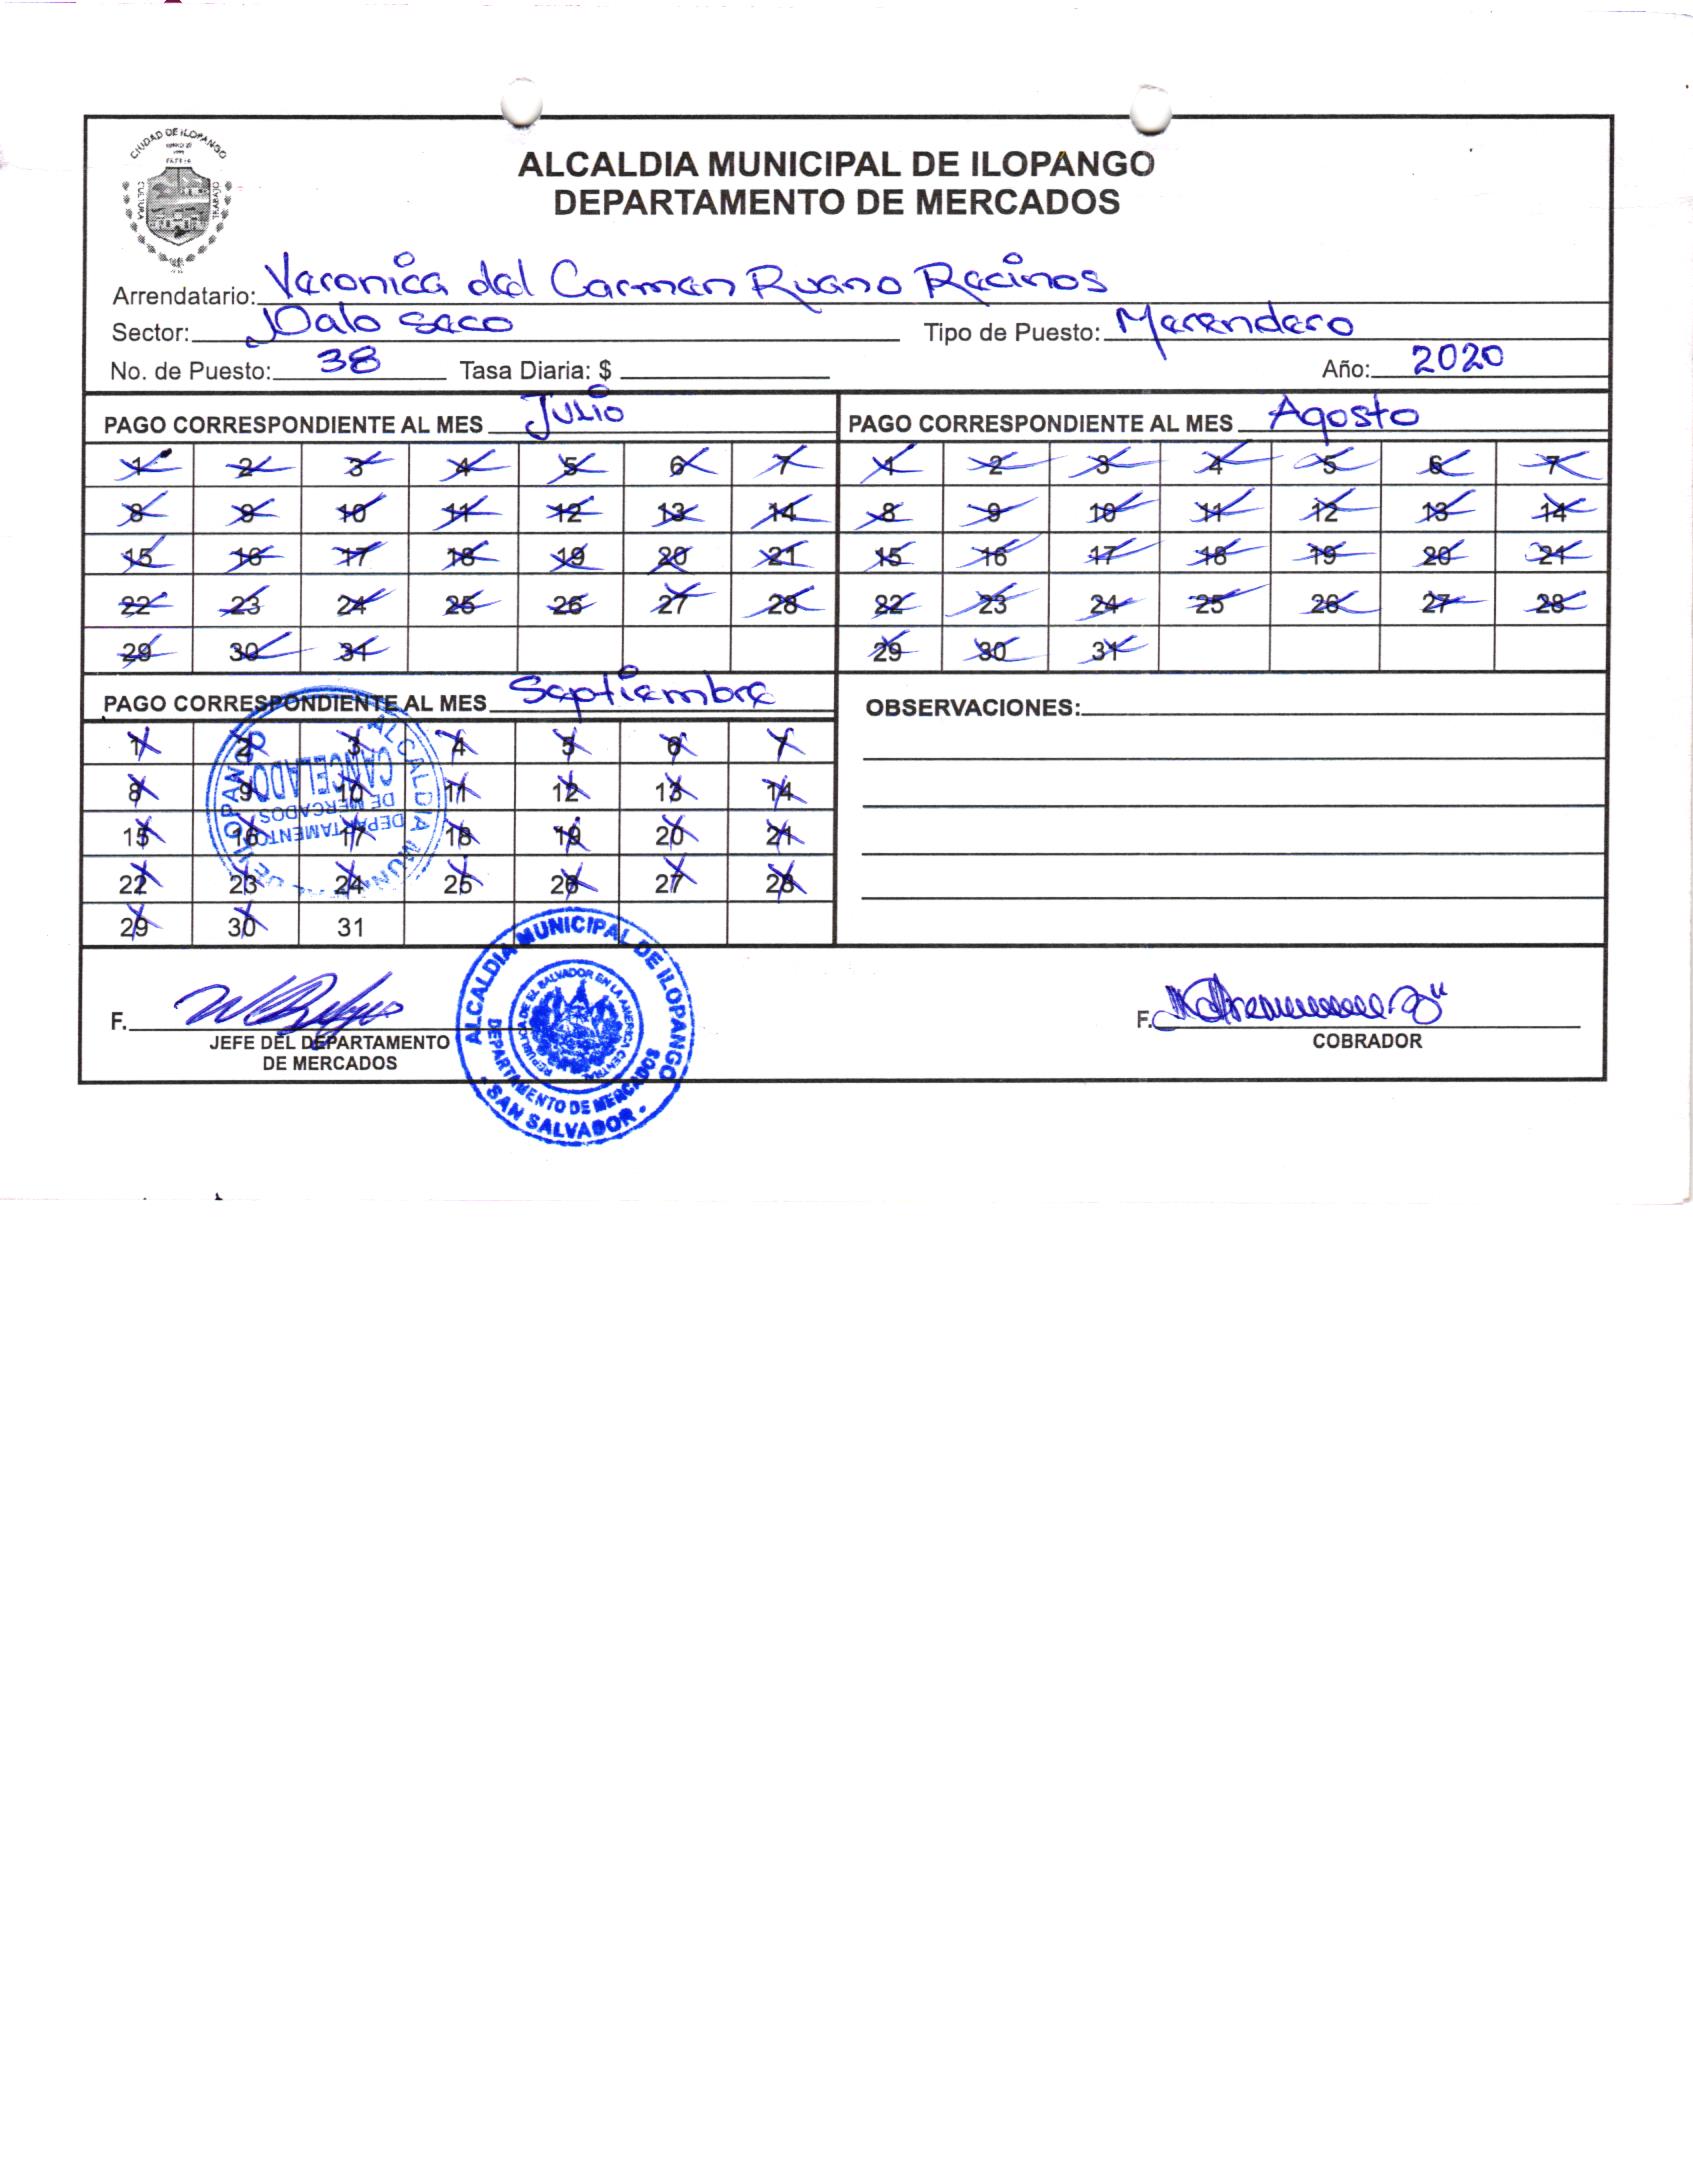 CIUDAD DE ILOPANGO
CULTURA
TRABAJO
ALCALDIA MUNICIPAL DE ILOPANGO
DEPARTAMENTO DE MERCADOS
Arrendatario: Veronica del Carmen Ruano Recinos
Sector: Palo seco Tipo de Puesto: Merendero
No. de Puesto: 38 Tasa Diaria: $ Año: 2020
PAGO CORRESPONDIENTE AL MES Julio
1 2 3 4 5 6 7
8 9 10 11 12 13 14
15 16 17 18 19 20 21
22 23 24 25 26 27 28
29 30 31
PAGO CORRESPONDIENTE AL MES Agosto
1 2 3 4 5 6 7
8 9 10 11 12 13 14
15 16 17 18 19 20 21
22 23 24 25 26 27 28
29 30 31
PAGO CORRESPONDIENTE AL MES Septiembre
1 2 3 4 5 6 7
8 9 10 11 12 13 14
15 16 17 18 19 20 21
22 23 24 25 26 27 28
29 30 31
ALCALDIA MUNICIPAL DE ILOPANGO
DEPARTAMENTO
DE MERCADOS
CANCELADO
OBSERVACIONES:
F.
JEFE DEL DEPARTAMENTO
DE MERCADOS
ALCALDIA MUNICIPAL DE ILOPANGO
REPUBLICA DE EL SALVADOR EN LA AMERICA CENTRAL
DEPARTAMENTO DE MERCADOS
- SAN SALVADOR -
F.
COBRADOR